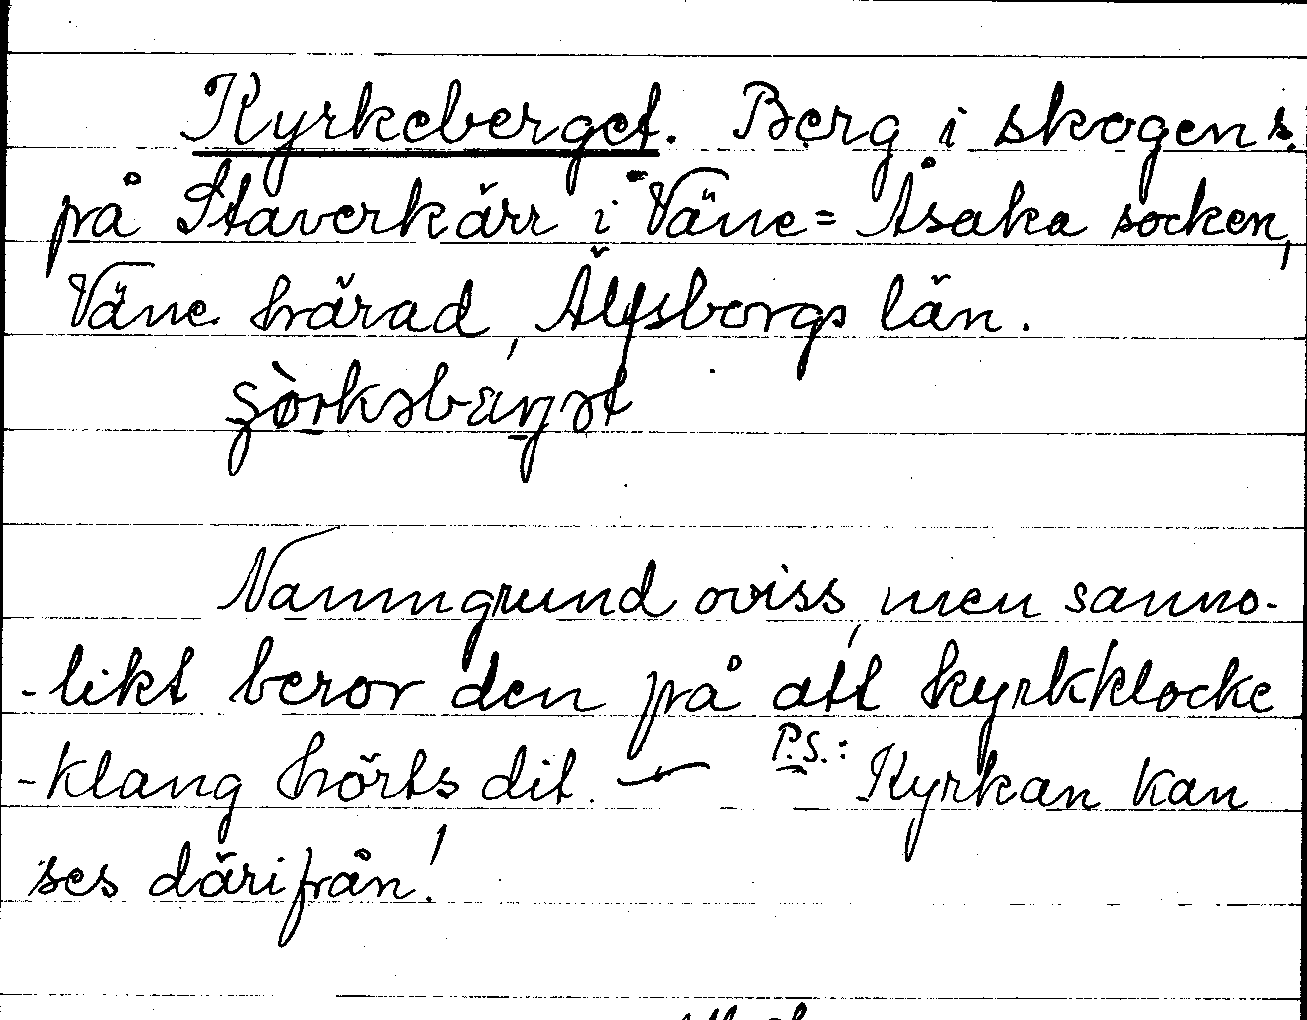 Kyrkeberget. Berg i skogen s.
på Staverkärr i Väne-Åsaka socken,
Väne härad, Älfsborgs län.
Namngrund oviss, men sanno-
-likt beror den på att kyrkklocke
-klang hörts dit. — P.S.: Kyrkan kan
ses därifrån!